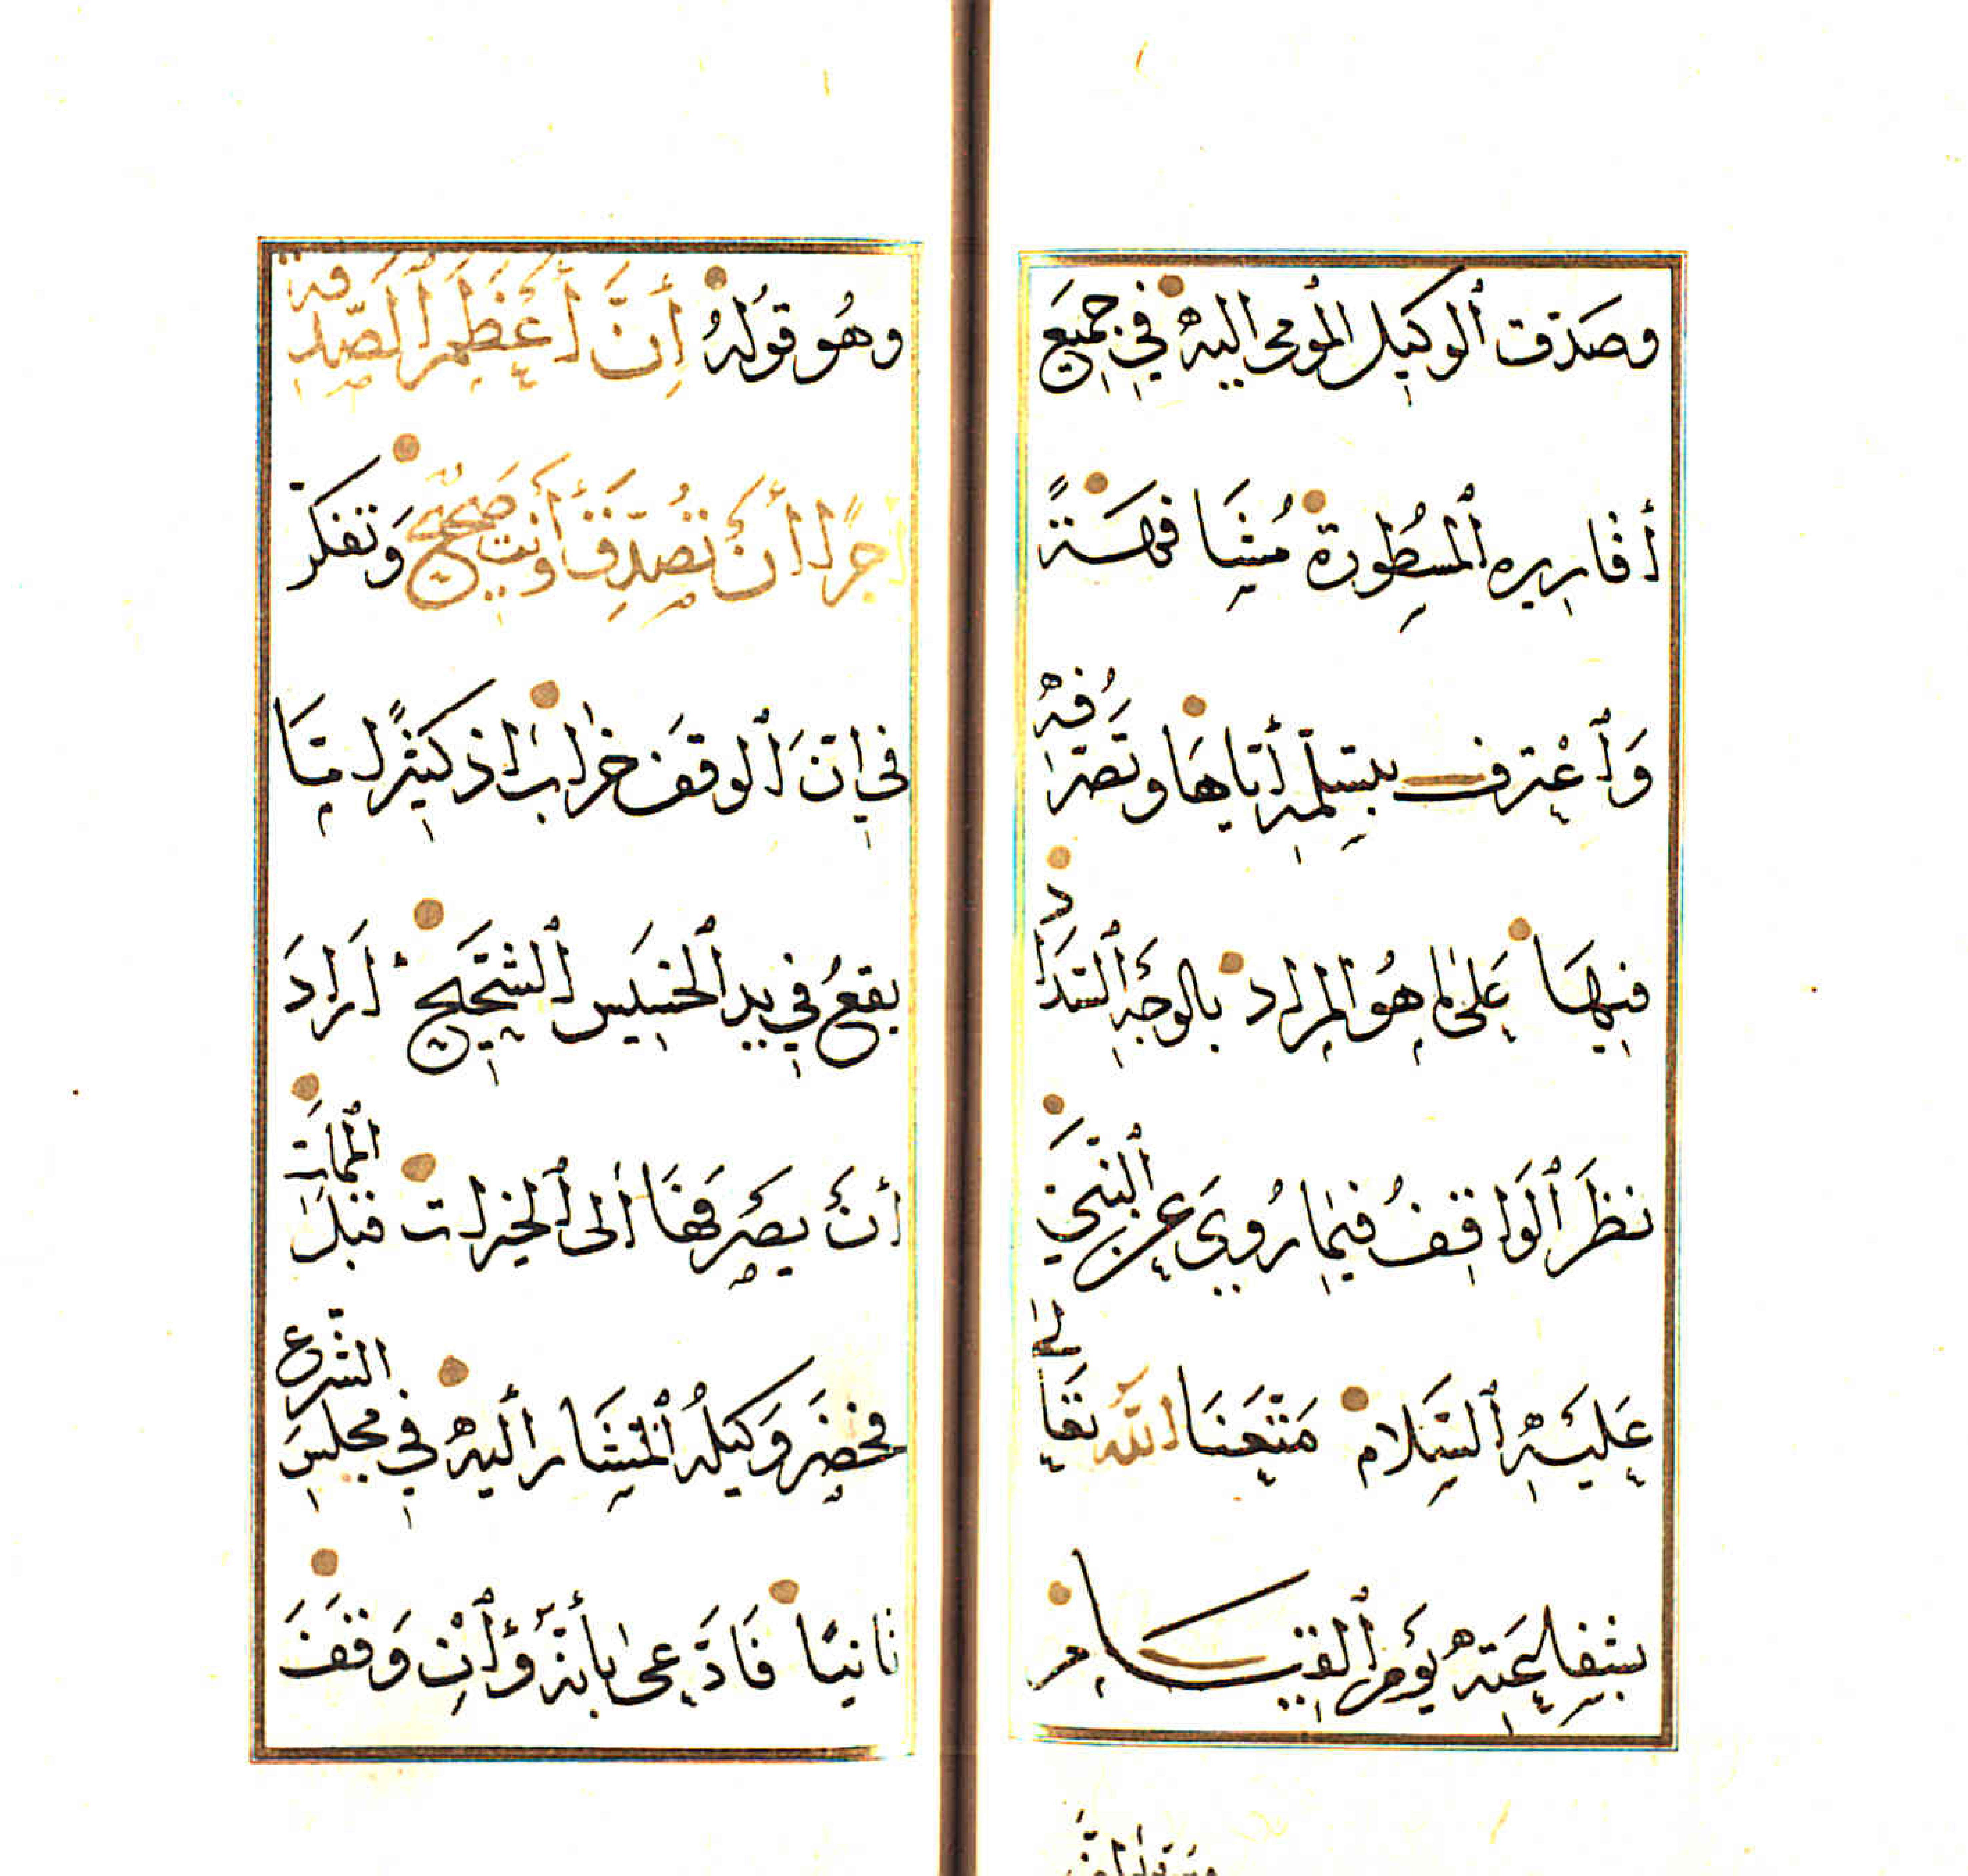 وصدّق ٱلوكيل المومى اليه في جميع
أقاريره ٱلمسطورة مشافهةً
وٱعترف بتسلّمه أيّاها وتصرّفه
فيها على ما هو المراد بالوجه ٱلسّداد
نظر ٱلواقف فيما روي عن ٱلنّبيّ
عليه ٱلسّلام متّعنا الله تعالى
بشفاعته يوم ٱلقيام
وهو قوله أنّ أعظم ٱلصّدقة
أجرًا أن تصدّق وأنت صحيح وتفكّر
في انّ ٱلوقف خراب اذ كثيرًا مّا
يقع في يد ٱلخسيس ٱلشّحيح اراد
أن يصرفها الى ٱلخيرات قبل ٱلممات
فحضر وكيله ٱلمشار اليه في مجلس الشّرع
ثانيًا فادّعى بأنّه وٱن وقف